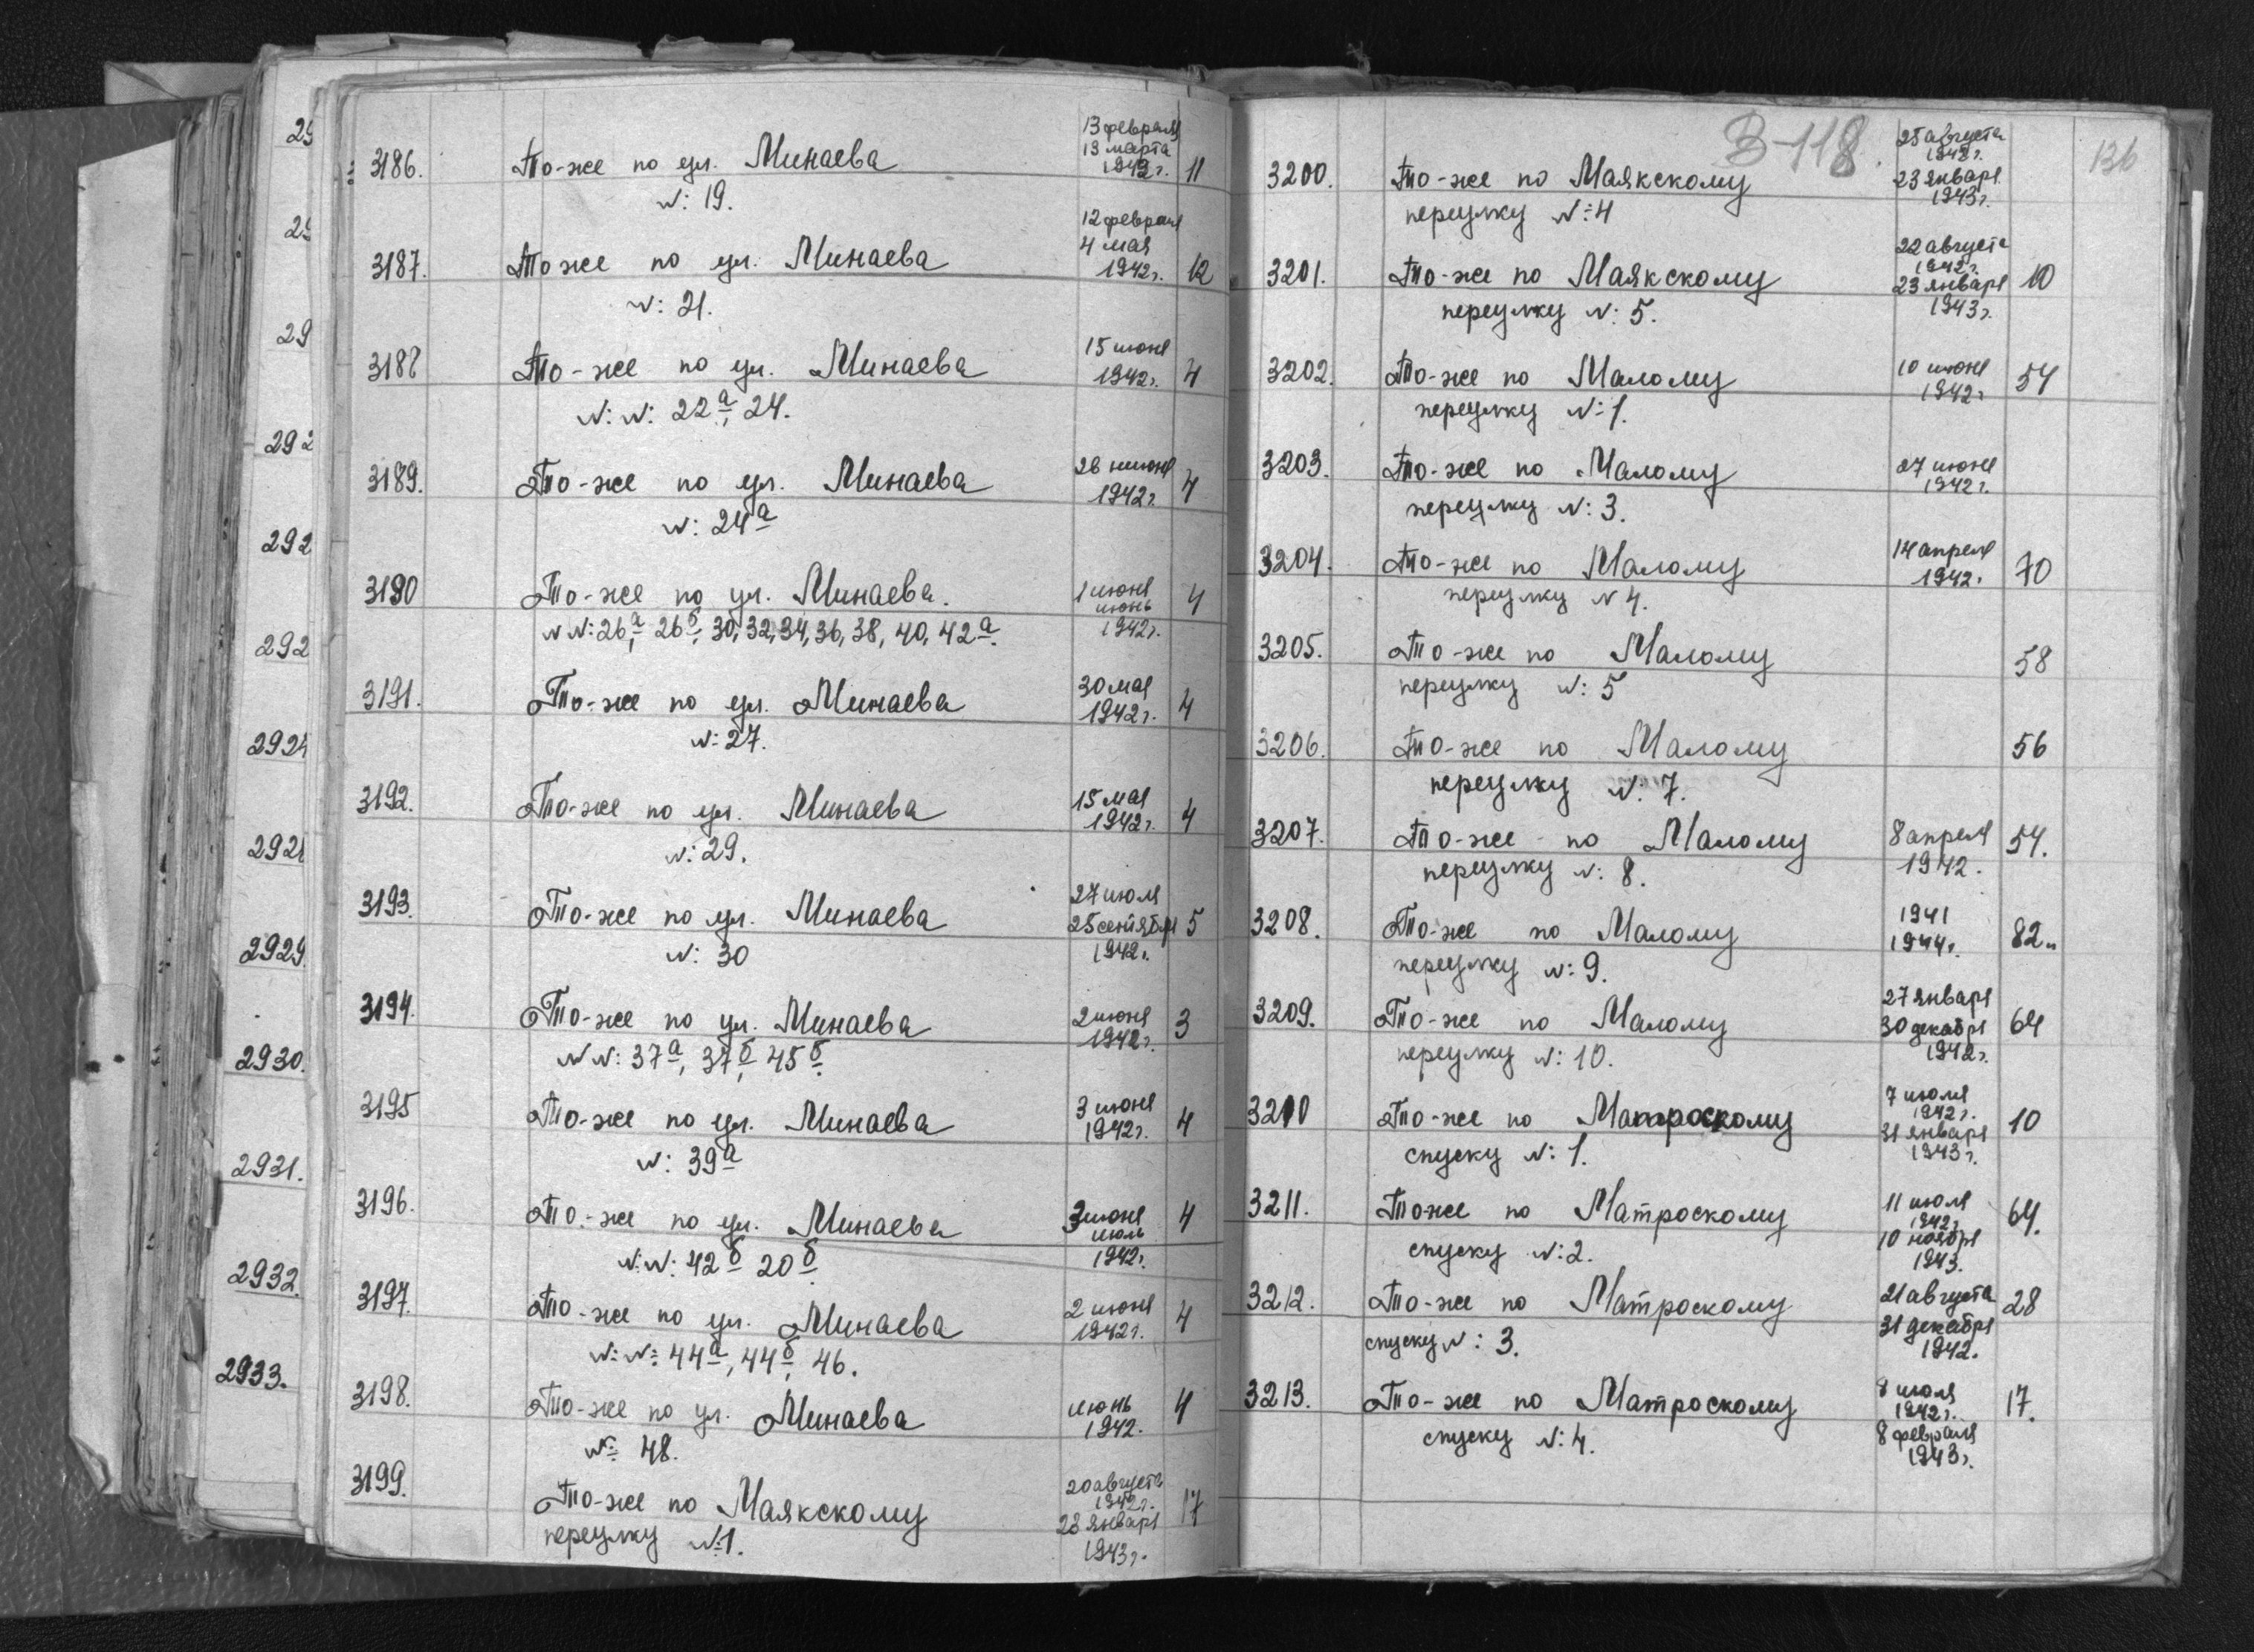 29
29
29
292
292
292
2924
2928
2929.
2930.
2931.
2932.
2933.
13 февраля
13 марта
3186. То-же по ул. Минаева 1942г. 11
№: 19.
12 февраля
4 мая
3187. Тоже по ул. Минаева 1942г. 12
№: 21.
15 июня
3188 То-же по ул. Минаева 1942г. 4
№: №: 22а, 24.
26 июня
3189. То-же по ул. Минаева 1942г. 4
№: 24а
1 июня
3190 То-же по ул. Минаева. июнь 4
№ №: 26а, 26б, 30, 32, 34, 36, 38, 40, 42а. 1942г.
30 мая
3191. То-же по ул. Минаева 1942г. 4
№: 27.
15 мая
3192. То-же по ул. Минаева 1942г. 4
№: 29.
27 июля
3193. То-же по ул. Минаева 25 сентября 5
№: 30 1942г.
3194. То-же по ул. Минаева 2 июня 3
1942г.
№ №: 37а, 37б, 45б.
3195 То-же по ул. Минаева 3 июня 4
1942г.
№: 39а
3196. То-же по ул. Минаева 3 июня 4
июль
№: №: 42б 20б. 1942г.
3197. То-же по ул. Минаева 2 июня 4
1942г.
№: №: 44а, 44б, 46.
3198. То-же по ул. Минаева июнь 4
1942.
№: 48.
20 августа
1942г.
3199. То-же по Маякскому 23 января 17
переулку №1. 1943г.
В-118. 136
25 августа
1942г.
3200. То-же по Маякскому 23 января
переулку №: 4 1943г.
22 августа
1942г.
3201. То-же по Маякскому 23 января 10
переулку №: 5. 1943г.
3202. То-же по Малому 10 июня 54
1942г
переулку №: 1.
3203. То-же по Малому 27 июня
1942г.
переулку №: 3.
14 апреля
3204. То-же по Малому 1942. 70
переулку № 4.
3205. То-же по Малому 58
переулку №: 5
3206. То-же по Малому 56
переулку №: 7.
3207. То-же по Малому 8 апреля 54.
переулку №: 8. 1942.
1941
3208. То-же по Малому 1944г. 82
переулку №: 9.
27 января
3209. То-же по Малому 30 декабря 64
переулку №: 10. 1942г.
7 июля
1942г.
3210 То-же по Матроскому 31 января 10
спуску №: 1. 1943г.
11 июля
3211. Тоже по Матроскому 1942г 64.
10 ноября
спуску №: 2. 1943.
3212. То-же по Матроскому 21 августа 28
31 декабря
спуску №: 3. 1942.
8 июля
3213. То-же по Матроскому 1942г. 17.
8 февраля
спуску №: 4. 1943г.